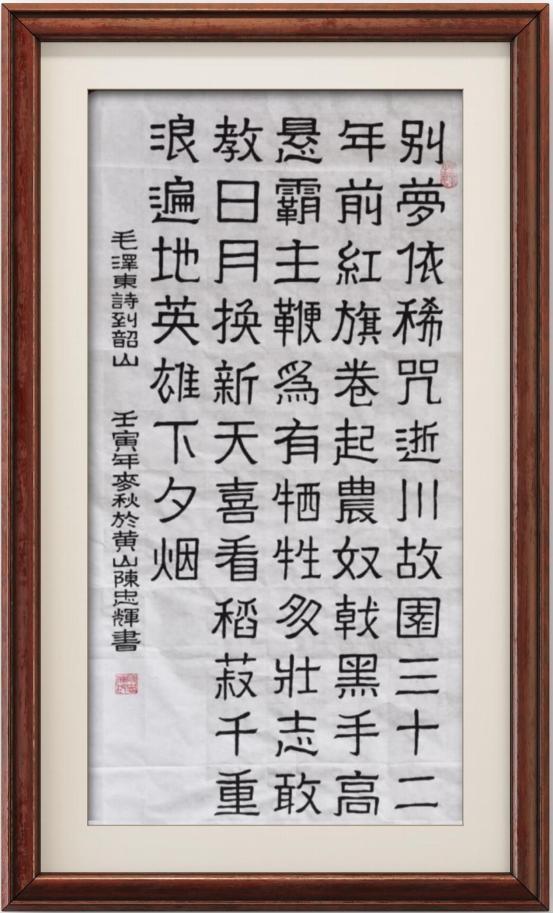 别夢依稀咒逝川故園三十二
年前紅旗卷起農奴戟黑手高
悬霸主鞭爲有牺牲多壯志敢
教日月换新天喜看稻菽千重
浪遍地英雄下夕烟
毛澤東詩到韶山 壬寅年麥秋於黄山陳忠輝書